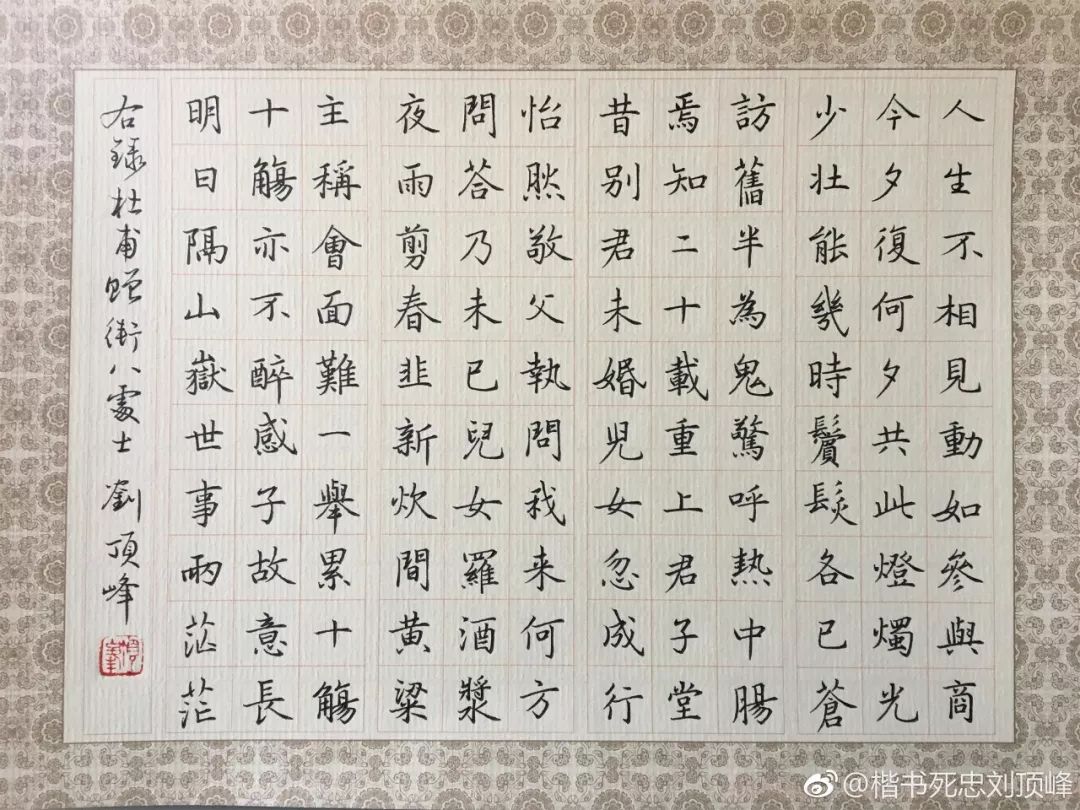 人生不相見動如參與商
今夕復何夕共此燈燭光
少壯能幾時鬢髮各已蒼
訪舊半為鬼驚呼熱中腸
焉知二十載重上君子堂
昔別君未婚兒女忽成行
怡然敬父執問我来何方
問答乃未已兒女羅酒漿
夜雨剪春韭新炊間黄粱
主稱會面難一舉累十觴
十觴亦不醉感子故意長
明日隔山嶽世事兩茫茫
右録杜甫贈衛八處士 劉頂峰
@楷书死忠刘顶峰